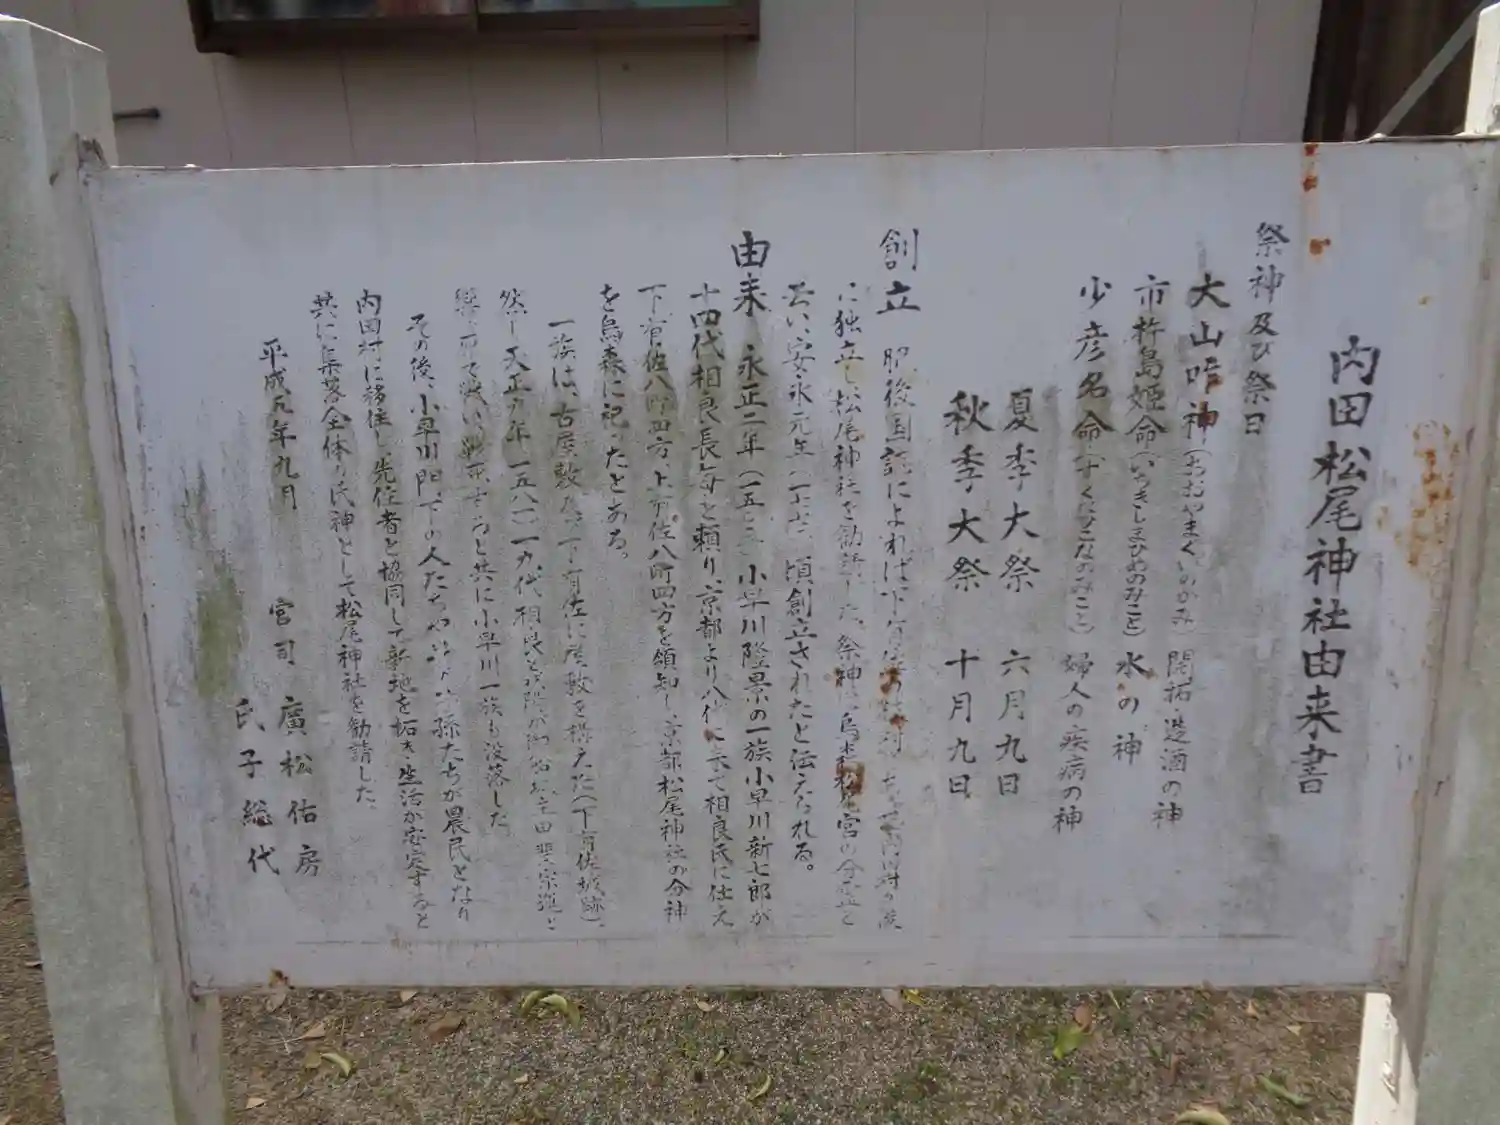 内田松尾神社由来書
祭神及び祭日
大山咋神(おおやまくいのかみ)開拓 造酒の神
市杵島姫命(いちきしまひめのみこと)水の神
少彦名命(すくなひこなのみこと)婦人の疾病の神
夏季大祭 六月九日
秋季大祭 十月九日
創立 肥後国誌によれば下有佐
に独立し松尾神社を勧請した。祭神は烏森松尾宮の分霊と
云い、安永元年 頃創立されたと伝えられる。
由来 永正二年 小早川隆景の一族小早川新七郎が
十四代相良長毎を頼り京都より八代に来て相良氏に仕え
下有佐八町四方、上有佐八町四方を領知し、京都松尾神社の分神
を烏森に祀ったとある。
一族は、古屋敷など下有佐に屋敷を構えた(下有佐城跡)。
然し天正九年(一五八一)十九代相良義陽が御船城主甲斐宗運と
響ヶ原で戦い、戦死すると共に小早川一族も没落した。
その後、小早川門下の人たちや 子孫たちが農民となり
内田村に移住し、先住者と協同して新地を拓き生活が安定すると
共に集落全体の氏神として松尾神社を勧請した。
平成元年九月
宮司 廣松佑房
氏子総代